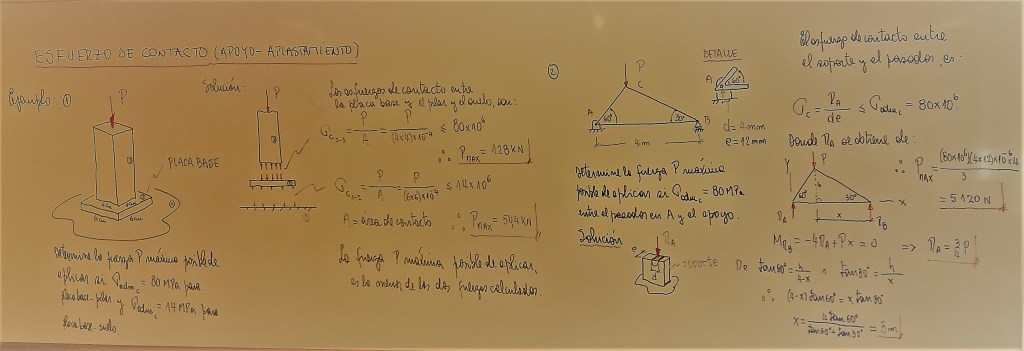 ESFUERZO DE CONTACTO (APOYO-APLASTAMIENTO)
Ejemplo ①
P
PLACA BASE
6cm 6cm
Determine la fuerza P máxima posible de
aplicar si σadmc = 80 MPa para
placa base-pilar y σadmc = 14 MPa para
placa base-suelo.
Solución:
P
Los esfuerzos de contacto entre
la placa base y el pilar y el suelo, son:
σc2-3 = P/A = P/(4x4)x10⁻⁴ ≤ 80x10⁶
∴ PMAX = 128 KN
σc1-2 = P/A = P/(6x6)x10⁻⁴ ≤ 14x10⁶
A = área de contacto ∴ PMAX = 50,4 KN
La fuerza P máxima posible de aplicar,
es la menor de las dos fuerzas calculadas.
②
P
C
A 60° 30° B
4 m
DETALLE
A 60°
d = 4mm
e = 12mm
Determine la fuerza P máxima
posible de aplicar si σadmc = 80 MPa
entre el pasador en A y el apoyo.
Solución
RA
e
d
SOPORTE
El esfuerzo de contacto entre
el soporte y el pasador, es:
σc = RA/de ≤ σadmc = 80x10⁶
Donde RA se obtiene de:
Y P
h
60° 30° x
x
RA RB
∴ PMAX = (80x10⁶)(4x12)x10⁻⁶x4/3
= 5120 N
MRB = -4RA + Px = 0 => RA = 3/4 P
De tan60° = h/4-x ∧ tan30° = h/x
∴ (4-x) tan60° = x tan30°
x = 4tan60°/tan60°+tan30° = 3m